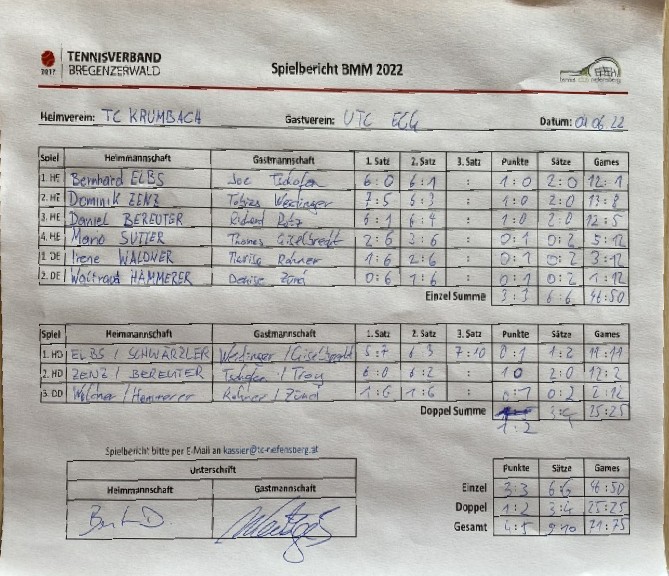 TENNISVERBAND
2017 BREGENZERWALD
Spielbericht BMM 2022
Heimverein: TC KRUMBACH Gastverein: UTC EGG Datum: 04.06.22
Spiel Heimmannschaft Gastmannschaft 1. Satz 2. Satz 3. Satz Punkte Sätze Games
1. HE Bernhard ELBS Joe Tschofen 6:0 6:1 : 1:0 2:0 12:1
2. HE Dominik ZENZ Tobias Weidinger 7:5 6:3 : 1:0 2:0 13:8
3. HE Daniel BEREUTER Richard 6:1 6:4 : 1:0 2:0 12:5
4. HE Mario SUTTER Thomas Giselbrecht 2:6 3:6 : 0:1 0:2 5:12
1. DE Irene WALDNER Rohner 1:6 2:6 : 0:1 0:2 3:12
2. DE Waltraud HAMMERER Denise Zünd 0:6 1:6 : 0:1 0:2 1:12
Einzel Summe 3:3 6:6 46:50
Spiel Heimmannschaft Gastmannschaft 1. Satz 2. Satz 3. Satz Punkte Sätze Games
1. HD ELBS / SCHWÄRZLER Weidinger / Giselbrecht 5:7 6:3 7:10 0:1 1:2 11:11
2. HD ZENZ / BEREUTER Tschofen / Troy 6:0 6:2 : 1:0 2:0 12:2
3. DD Waldner / Hammerer Rohner / Zünd 1:6 1:6 : 0:1 0:2 2:12
Doppel Summe 3:4 25:25
1:2
Spielbericht bitte per E-Mail an kassier@tc-riefensberg.at
Unterschrift
Heimmannschaft Gastmannschaft
Punkte Sätze Games
Einzel 3:3 6:6 46:50
Doppel 1:2 3:4 25:25
Gesamt 4:5 9:10 71:75